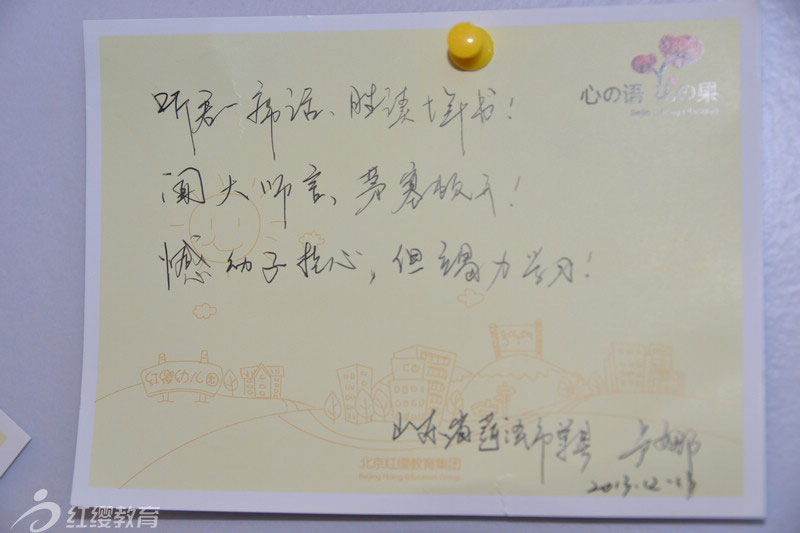 心の语 の果
听君一席话、胜读十年书!
闻大师言、茅塞顿开!
憾幼子扰心,但竭力学习!
红缨幼儿园
山东省菏泽市单县 卢娜
2013.12.13
北京红缨教育集团
红缨教育